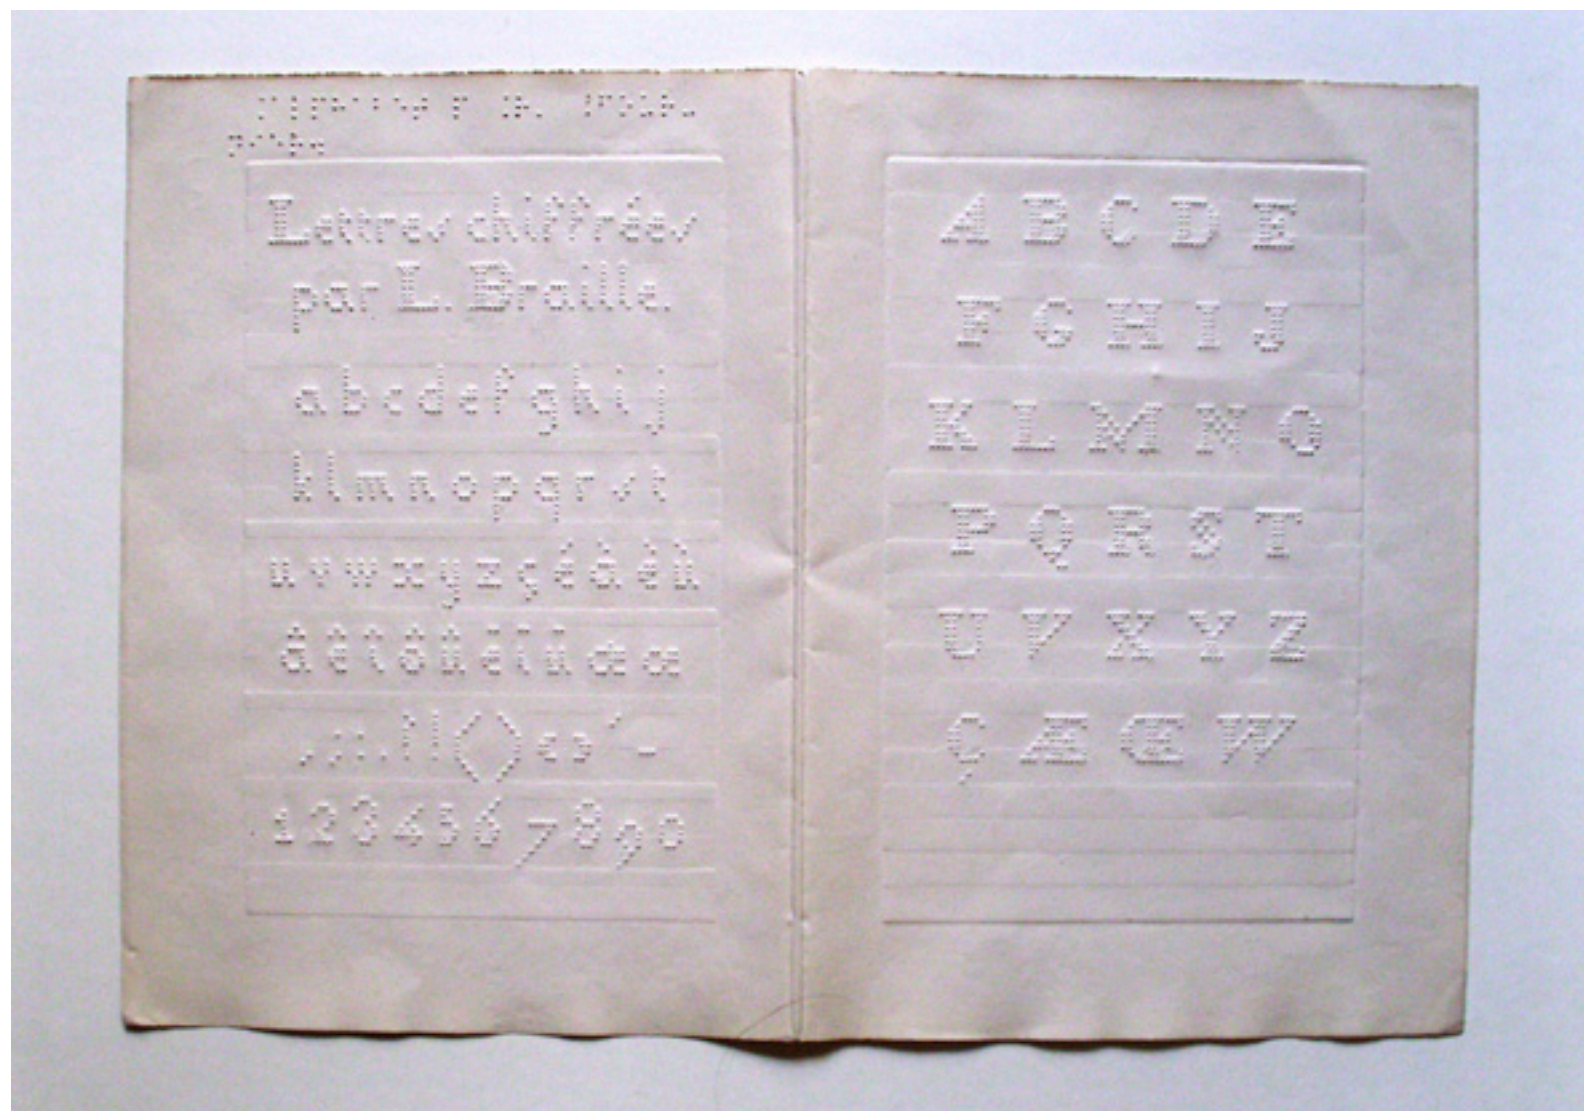 Lettres chiffrées
par L. Braille.
a b c d e f g h i j
k l m n o p q r s t
u v w x y z ç é à è ù
â ê î ô û ë ï ü æ œ
, ; : . ? ! ( ) « » ' -
1 2 3 4 5 6 7 8 9 0
A B C D E
F G H I J
K L M N O
P Q R S T
U V X Y Z
Ç Æ Œ W